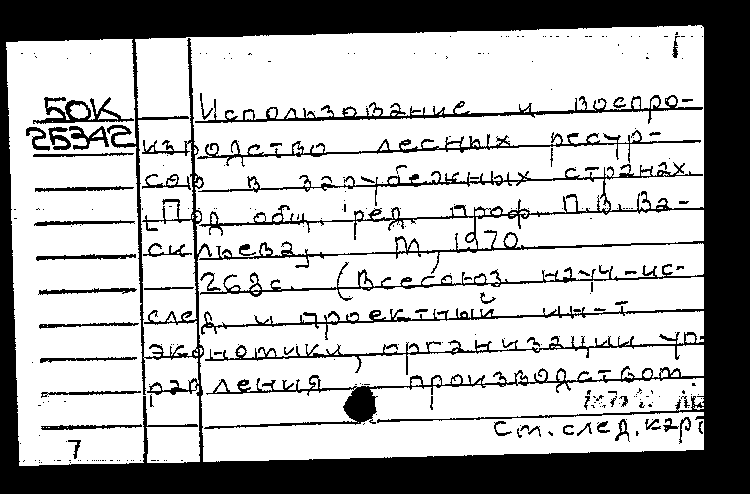 1
50К
25342
Использование и воспро-
изводство лесных ресур-
сов в зарубежных странах.
[Под общ. ред. проф. П.В. Ва-
сильева]. М, 1970.
268с. (Всесоюз. науч.-ис-
след. и проектный ин-т
экономики, организации уп-
равления производством.
См. след. карт
7